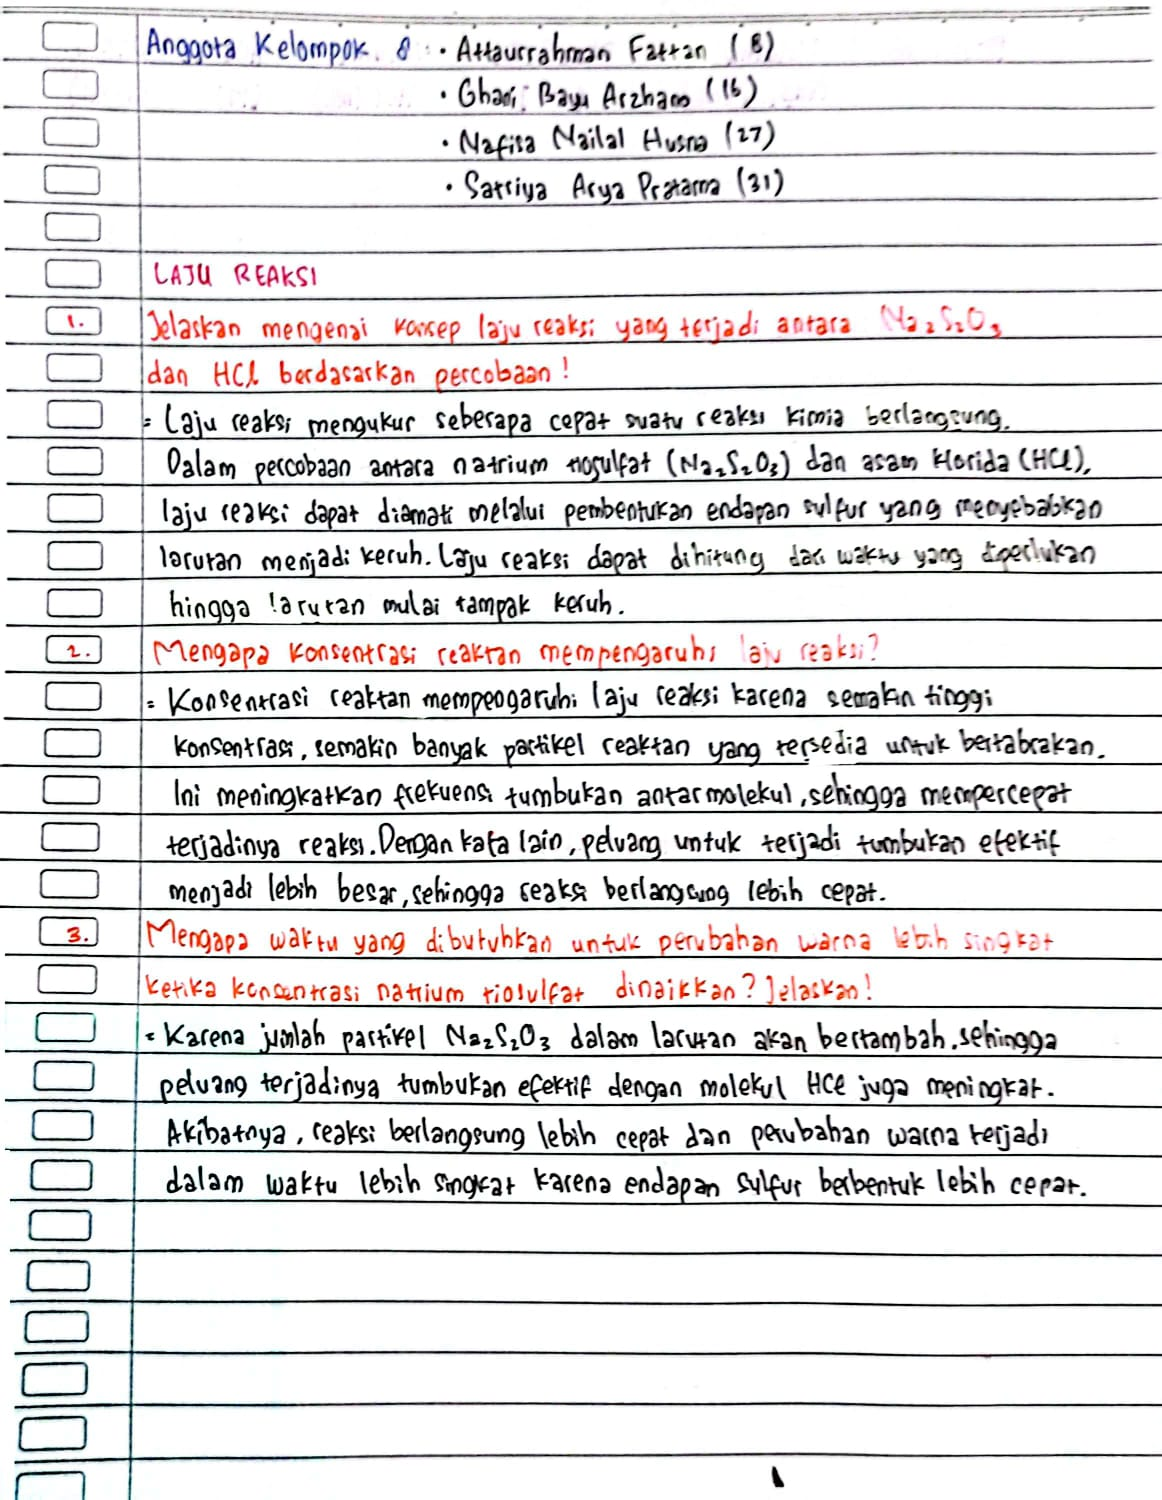 Anggota Kelompok 8 : • Attaurrahman Fattan (8)
• Ghani Bayu Arzhano (16)
• Nafisa Nailal Husna (27)
• Satriya Arya Pratama (31)
LAJU REAKSI
1. Jelaskan mengenai konsep laju reaksi yang terjadi antara Na₂S₂O₃
dan HCl berdasarkan percobaan!
= Laju reaksi mengukur seberapa cepat suatu reaksi kimia berlangsung.
Dalam percobaan antara natrium tiosulfat (Na₂S₂O₃) dan asam klorida (HCl),
laju reaksi dapat diamati melalui pembentukan endapan sulfur yang menyebabkan
larutan menjadi keruh. Laju reaksi dapat dihitung dari waktu yang diperlukan
hingga larutan mulai tampak keruh.
2. Mengapa konsentrasi reaktan mempengaruhi laju reaksi?
= Konsentrasi reaktan mempengaruhi laju reaksi karena semakin tinggi
konsentrasi, semakin banyak partikel reaktan yang tersedia untuk bertabrakan.
Ini meningkatkan frekuensi tumbukan antarmolekul, sehingga mempercepat
terjadinya reaksi. Dengan kata lain, peluang untuk terjadi tumbukan efektif
menjadi lebih besar, sehingga reaksi berlangsung lebih cepat.
3. Mengapa waktu yang dibutuhkan untuk perubahan warna lebih singkat
ketika konsentrasi natrium tiosulfat dinaikkan? Jelaskan!
= Karena jumlah partikel Na₂S₂O₃ dalam larutan akan bertambah, sehingga
peluang terjadinya tumbukan efektif dengan molekul HCl juga meningkat.
Akibatnya, reaksi berlangsung lebih cepat dan perubahan warna terjadi
dalam waktu lebih singkat karena endapan sulfur berbentuk lebih cepat.